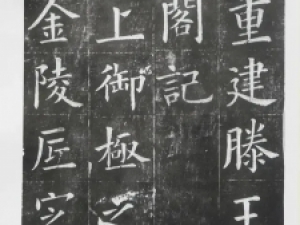 重建滕王
閣記
上御極之
金陵匠定